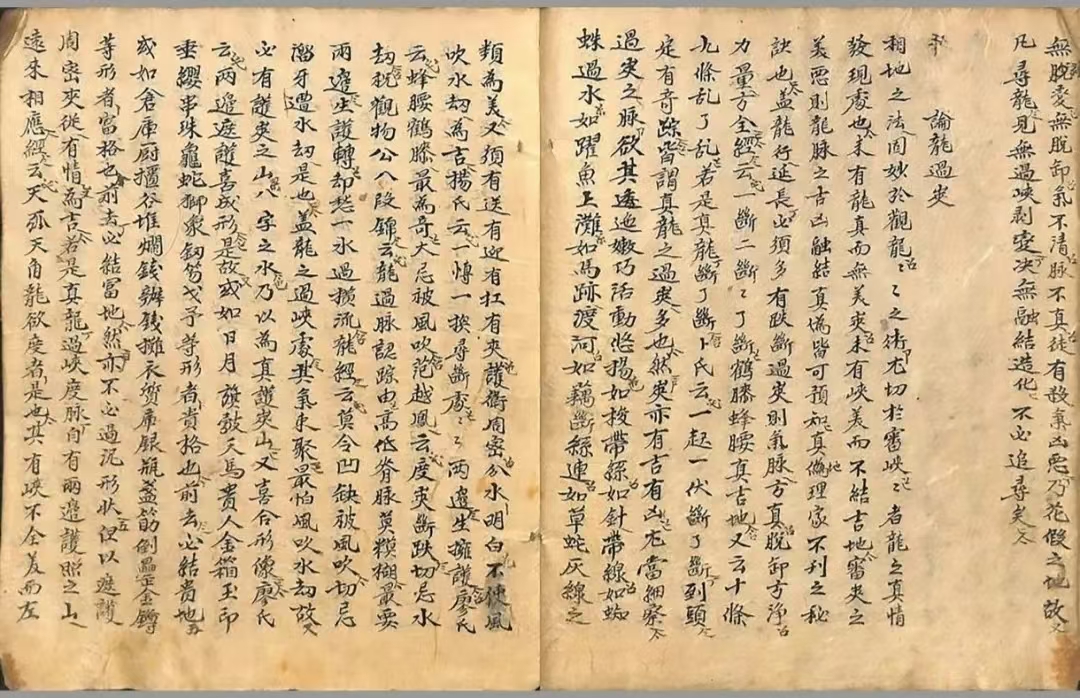 無脫变無脫卸氣不清脉不真徒有殺氣凶惡乃花假之地故又
凡尋龍見無過峽剥变决無融結造化不必追尋矣
論龍過夾
相地之法固妙於觀龍〻之術尤切於審峽〻者龍之真情
發現處也未有龍真而無美夾未有峡美而不結吉地審夾之
美惡則龍脉之吉凶融結真偽皆可預知真地理家不刊之秘
訣也盖龍行延長必須多有跌斷過夾則氣脉方真脫卸方淨
力量方全經云一斷二斷〻了斷鶴膝蜂腰真吉地又云十條
九條乱了乱若是真龍斷了斷卜氏云一起一伏斷了斷到頭
定有奇踪皆謂真龍之過夾多也然夾亦有吉有凶尤當細察
過夾之脉欲其透迤嫩巧活動悠揚如拽帶絲如針帶線如蜘
蛛過水如躍魚上灘如馬跡渡河如藕斷絲連如草蛇灰線之
類為美又須有送有迎有扛有夾護衛周密分水明白不使風
吹水刼為吉揚氏云一博一換尋斷處〻〻兩邉生擁護廖氏
云蜂腰鶴膝最為奇大忌被風吹范越鳳云度夾斷跌切忌水
刼祝觀物公八段錦云龍過脉認踪由高低脊脉莫糢糊最要
兩邉生護轉却愁一水過横流龍經云莫令凹缺被風吹切忌
溜牙遭水刼是也盖龍之過峽處其氣束聚最怕風吹水刼故
必有護夾之山八字之水乃以為真護夾山又喜合形像廖氏
云兩邉遮護喜成形是故或如日月旗鼓天馬貴人金箱玉印
垂纓串珠龜蛇獅象劍笏戈矛等形者貴格也前去必結貴地
或如倉庫厨櫃谷堆爛錢辦錢攤衣贅席銀瓶盞筯倒壘金罇
等形者富格也前去必結富地然亦不必過泥形状但以遮護
周密夾從有情為吉若是真龍過峽度脉自有兩邉護照之山
遠來相應經云天孤天角龍欲度者是也其有峽不全美而左